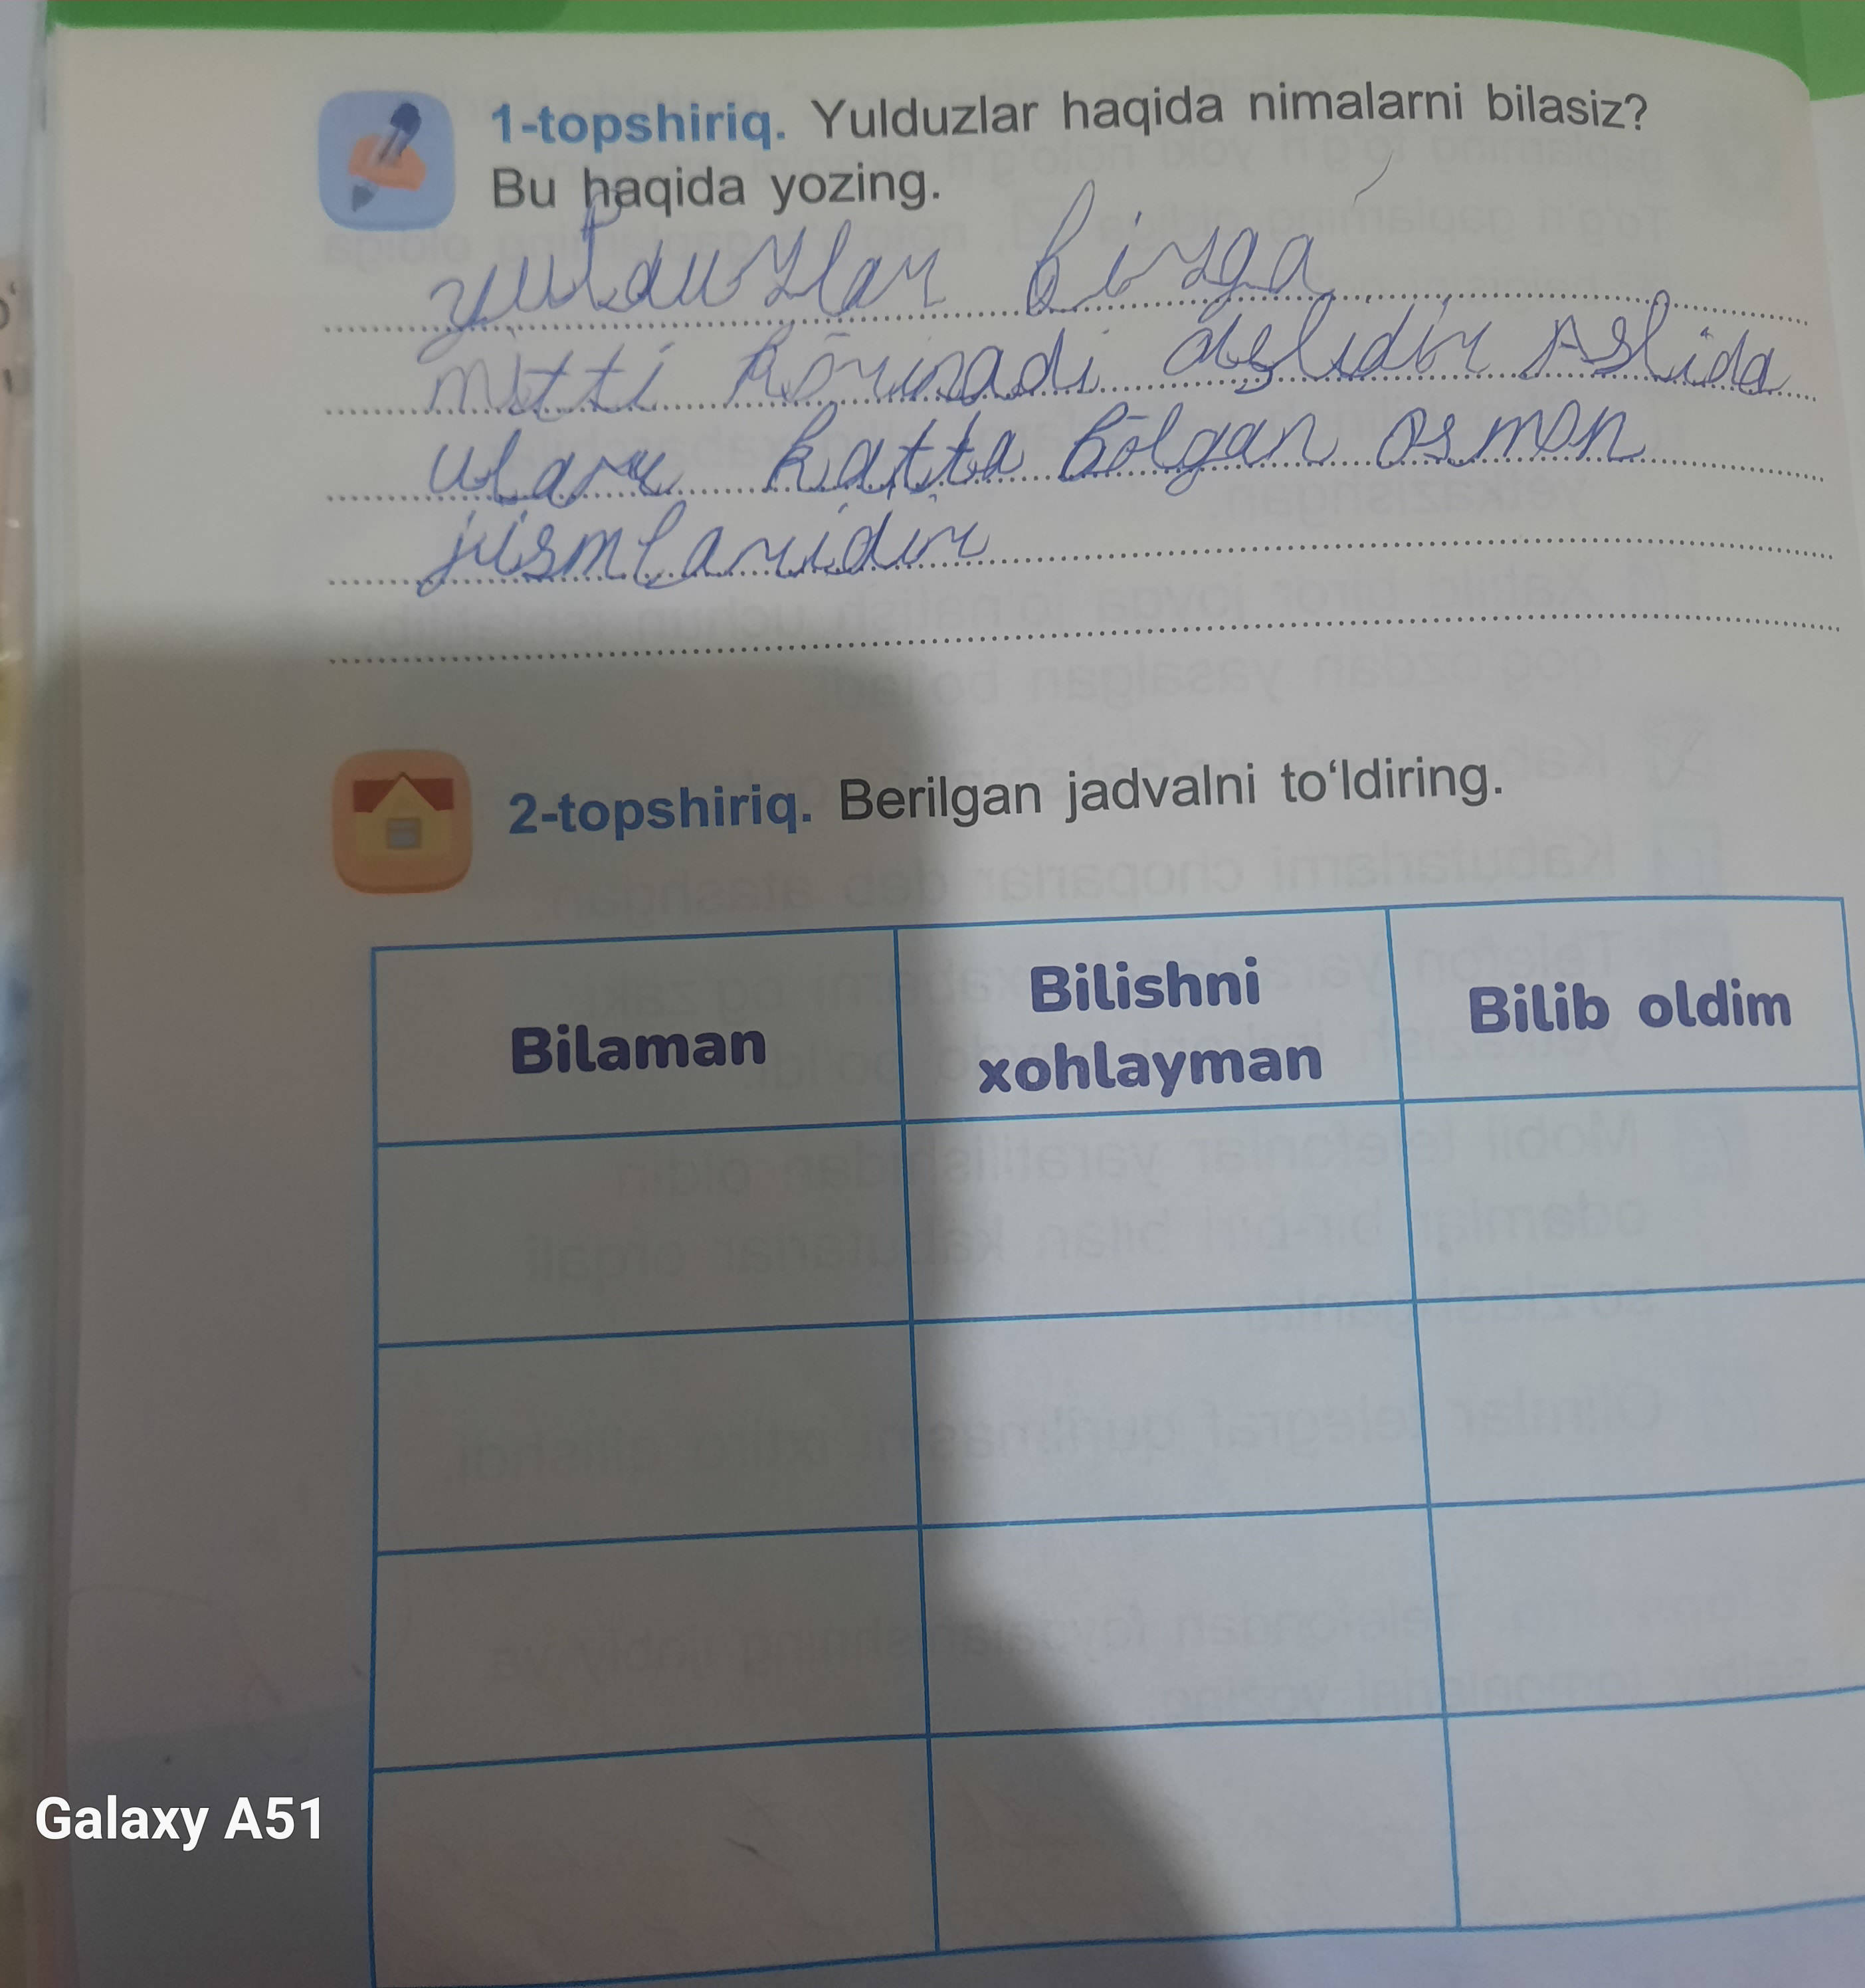 1-topshiriq. Yulduzlar haqida nimalarni bilasiz?
Bu haqida yozing.
yulduzlar bizga
mitti kōrinadi Aslida
ular katta bōlgan osmon
jismlaridir
2-topshiriq. Berilgan jadvalni to‘ldiring.
Bilaman
Bilishni
xohlayman
Bilib oldim
Galaxy A51